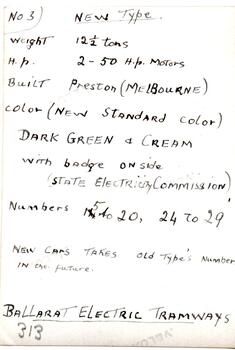 No 3) NEW Type.
Weight 12 1/2 tons
H.p. 2-50 H.p. Motors
Built Preston (MELBOURNE)
Color (NEW Standard Color)
DARK GREEN & CREAM
with badge on side
(STATE ELECTRICITY COMMISSION)
Numbers 15 to 20, 24 to 29
NEW CARS TAKES Old Type's Number
in the future.
BALLARAT ELECTRIC TRAMWAYS
313